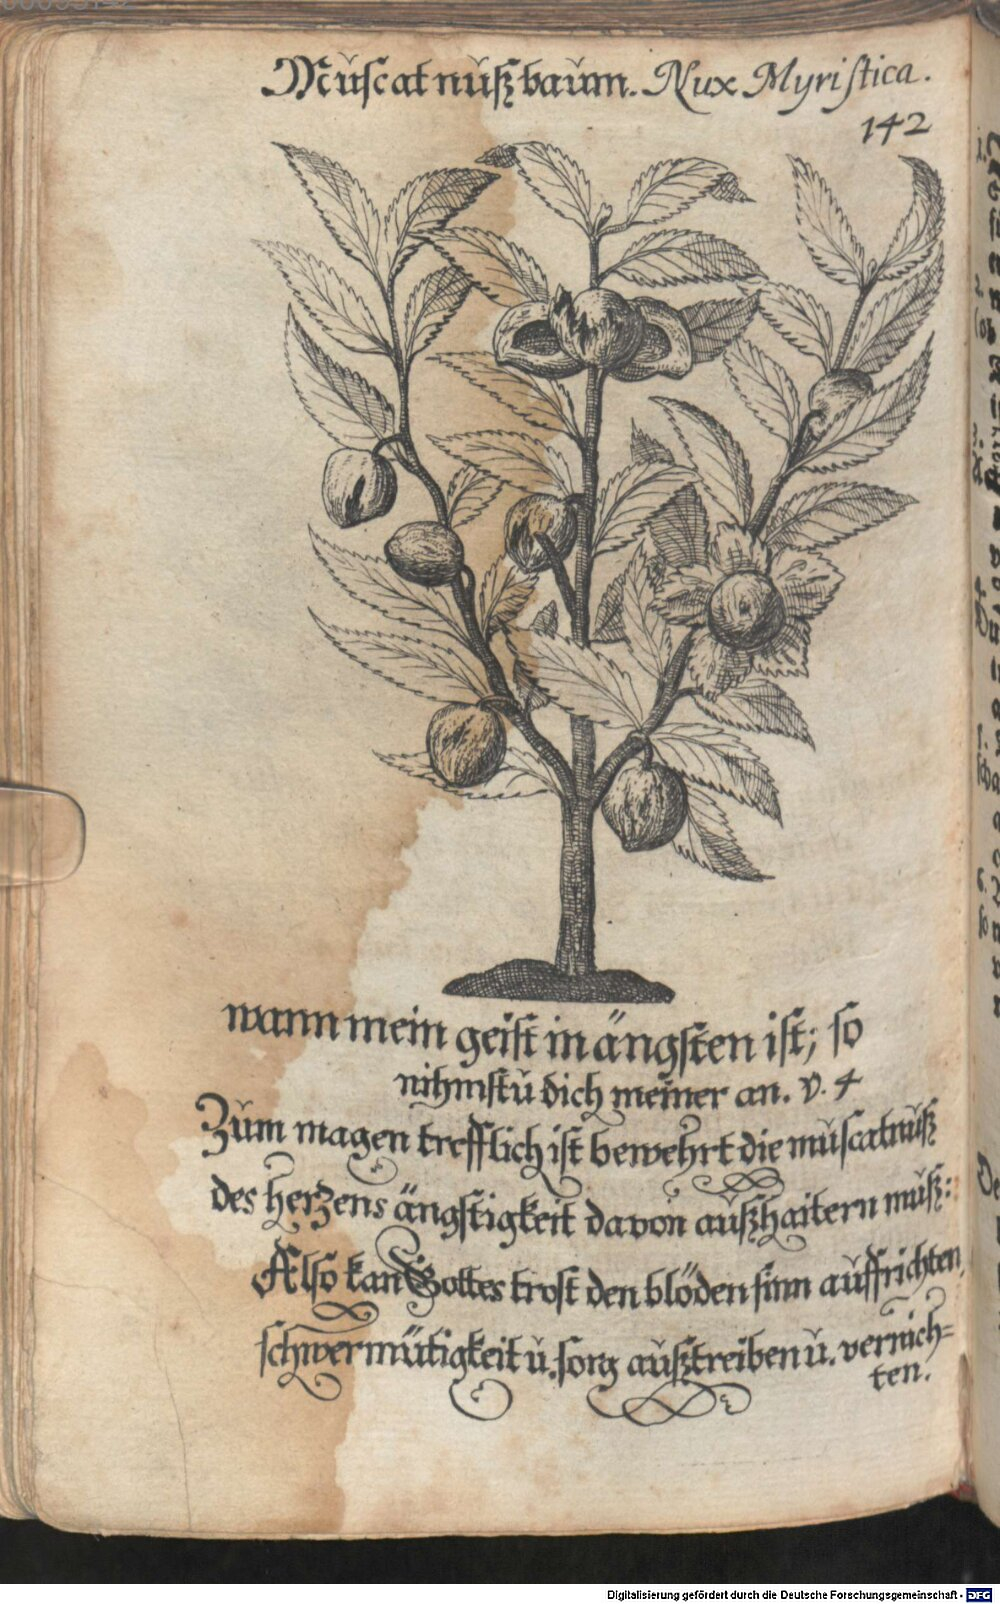 Muscatnußbaum. Nux Myristica.
142
wann mein geist in ängsten ist; so
nihmstu dich meiner an. v. 4
Zum magen trefflich ist bewehrt die muscatnuß
des herzens ängstigkeit davon außhaitern muß:
Also kan Gottes trost den blöden sinn auffrichten,
schwermütigkeit u. sorg außtreiben u. vernich=
ten.
Digitalisierung gefördert durch die Deutsche Forschungsgemeinschaft - DFG